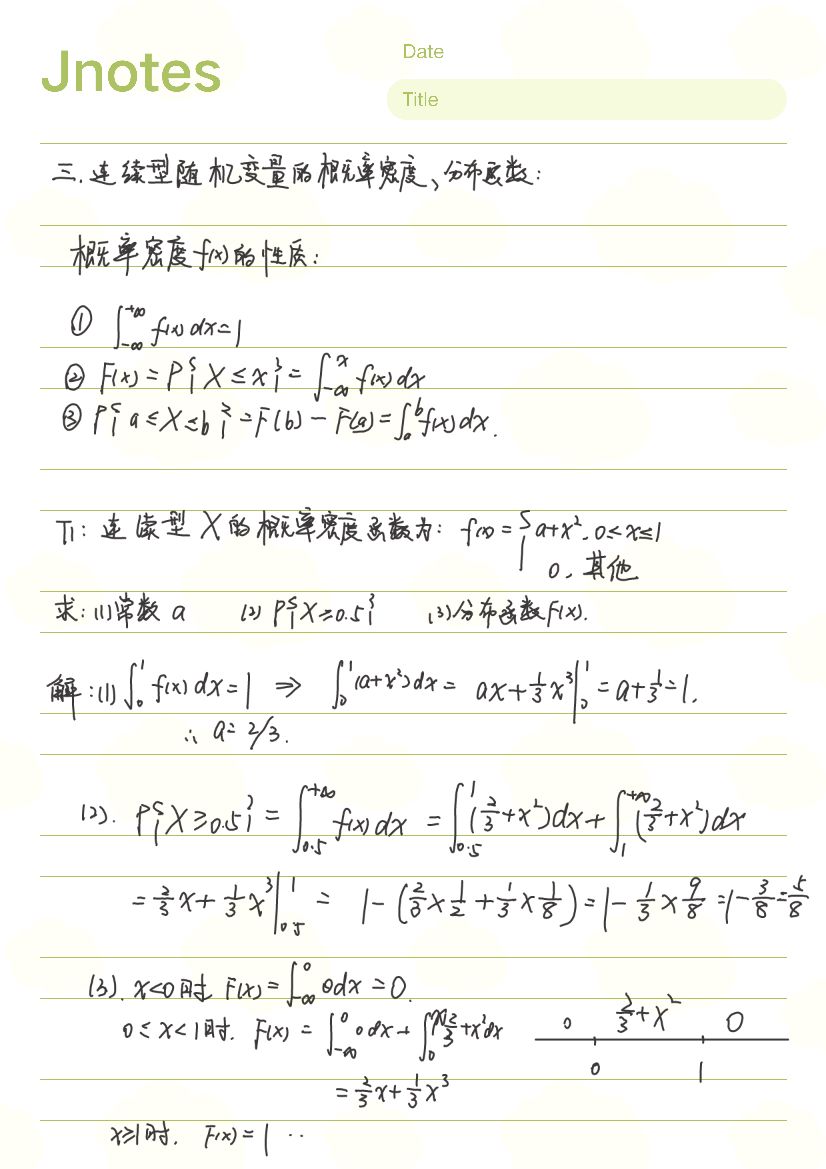 Jnotes
Date
Title
三.连续型随机变量的概率密度、分布函数:
概率密度f(x)的性质:
① ∫_{-∞}^{+∞} f(x)dx=1
② F(x)=P{X≤x}=∫_{-∞}^{x} f(x)dx
③ P{a≤X≤b}=F(b)-F(a)=∫_a^b f(x)dx.
T1: 连续型X的概率密度函数为: f(x)={a+x², 0≤x≤1
0, 其他
求:(1)常数a (2) P{X≥0.5} (3)分布函数F(x).
解:(1) ∫_0^1 f(x)dx=1 ⇒ ∫_0^1 (a+x²)dx= ax+1/3x³|_0^1=a+1/3=1.
∴ a=2/3.
(2). P{X≥0.5}=∫_{0.5}^{+∞} f(x)dx =∫_{0.5}^1 (2/3+x²)dx+∫_1^{+∞} (2/3+x²)dx
=2/3x+1/3x³|_{0.5}^1 = 1-(2/3×1/2+1/3×1/8)=1-1/3×9/8=1-3/8=5/8
(3). x<0时 F(x)=∫_{-∞}^0 0dx=0.
0≤x<1时. F(x)=∫_{-∞}^0 0dx+∫_0^x 2/3+x²dx
=2/3x+1/3x³
x≥1时. F(x)=1 ..
0 2/3+x² 0
0 1